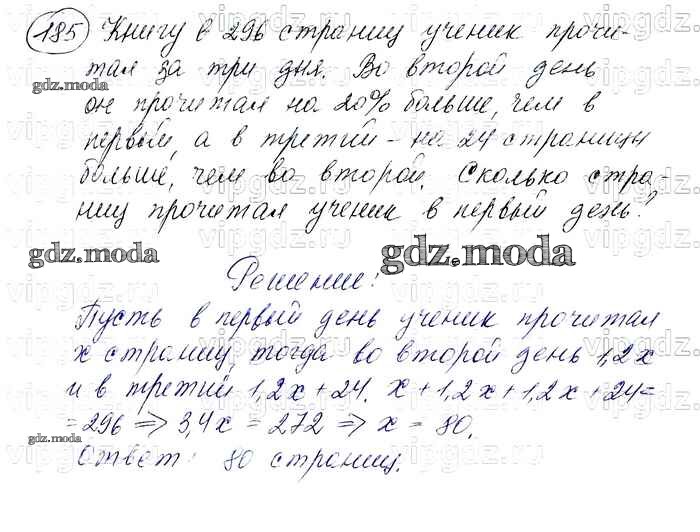 185 Книгу в 296 страниц ученик прочи-
тал за три дня. Во второй день
он прочитал на 20% больше, чем в
первый, а в третий - на 24 страницы
больше, чем во второй. Сколько стра-
ниц прочитал ученик в первый день?
Решение:
Пусть в первый день ученик прочитал
x страниц, тогда во второй день 1,2x
и в третий 1,2x + 24. x + 1,2x + 1,2x + 24 =
= 296 => 3,4x = 272 => x = 80.
Ответ: 80 страниц.
gdz.moda
gdz.moda
gdz.moda
gdz.moda
vipgdz.ru